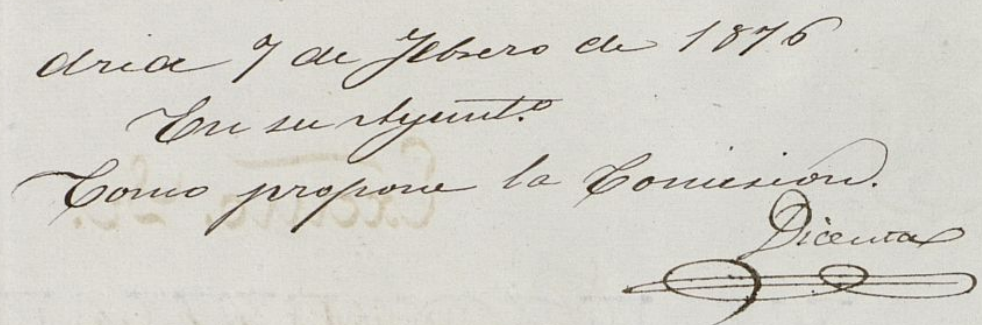 drid 7 de Febrero de 1876
En su Ayunt.º
Como propone la Comision.
Dicenta